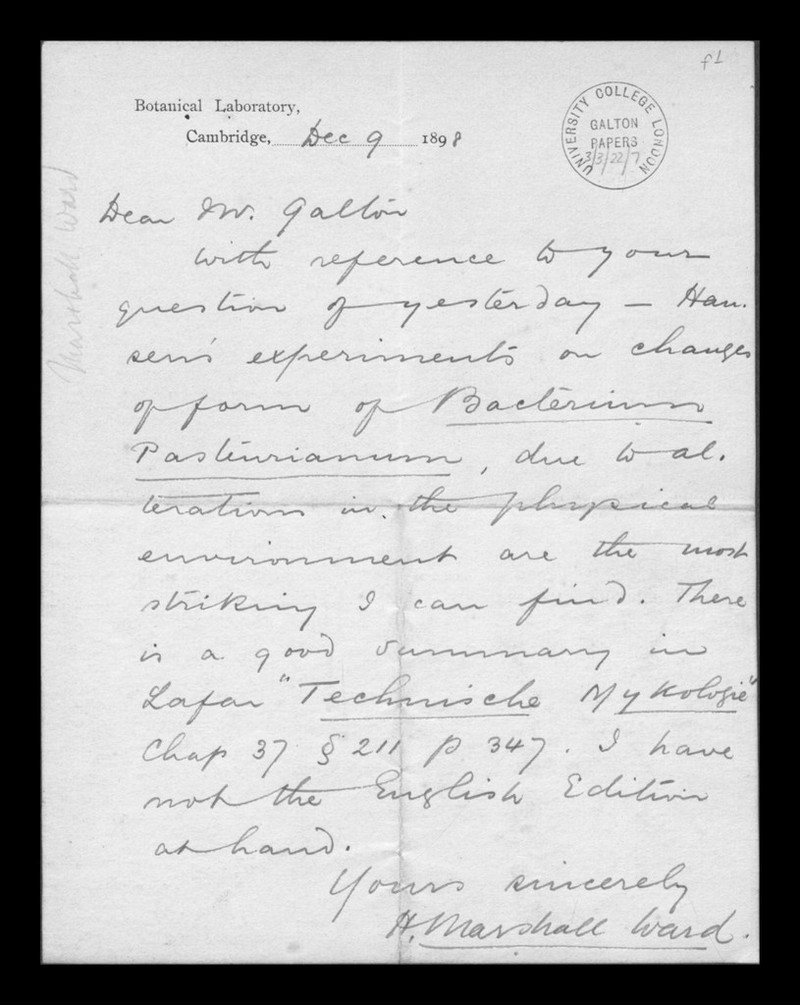 f1
Botanical Laboratory,
Cambridge, Dec 9 1898
UNIVERSITY COLLEGE LONDON
GALTON
PAPERS
3/3/22/7
Marshall Ward
Dear Mr. Galton
With reference to your
question of yesterday — Han-
sen's experiments on changes
of form of Bacterium
Pasteurianum, due to al-
terations in the physical
environment are the most
striking I can find. There
is a good summary in
Lafar "Technische Mykologie"
Chap 37 § 211 p 347. I have
not the English Edition
at hand.
Yours sincerely
H. Marshall Ward.